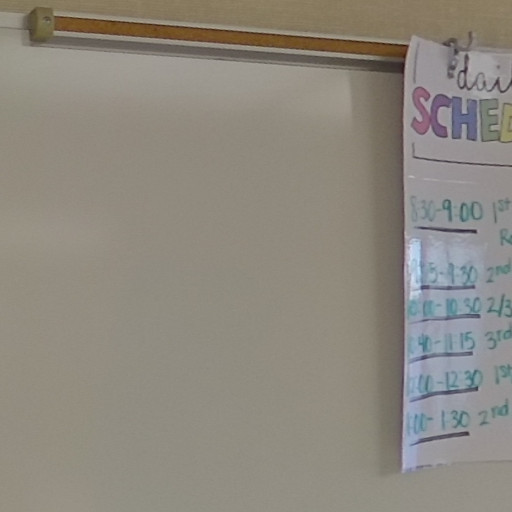 dai
SCHED
8:30-9:00 1st
Re
9:15-9:30 2nd
10:00-10:30 2/3
10:40-11:15 3rd
12:00-12:30 1st
1:00-1:30 2nd